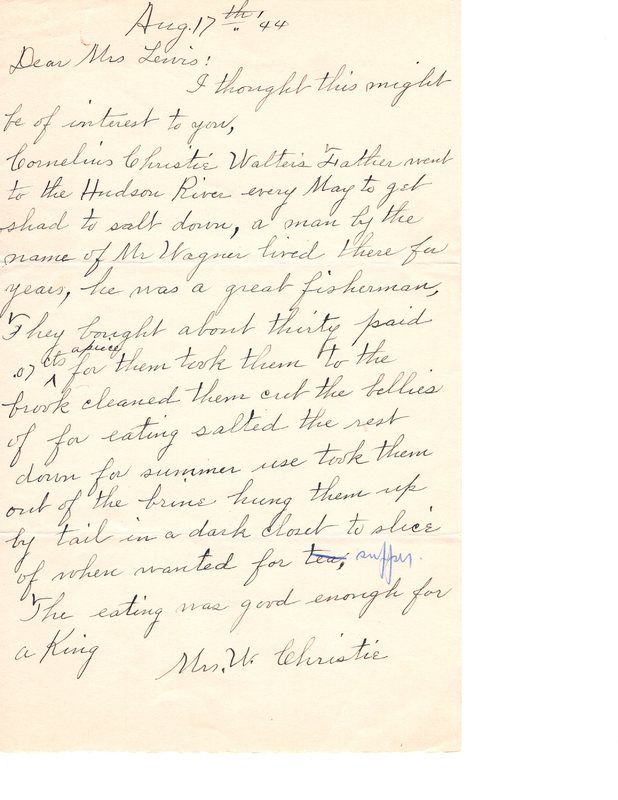 Aug. 17th, '44
Dear Mrs Lewis:
I thought this might
be of interest to you,
Cornelius Christie Walters Father went
to the Hudson River every May to get
shad to salt down, a man by the
name of Mr Wagner lived there for
years, he was a great fisherman,
They bought about thirty paid
.07 cts apiece for them took them to the
brook cleaned them cut the bellies
of for eating salted the rest
down for summer use took them
out of the brine hung them up
by tail in a dark closet to slice
of when wanted for tea, supper.
The eating was good enough for
a King
Mrs. W. Christie